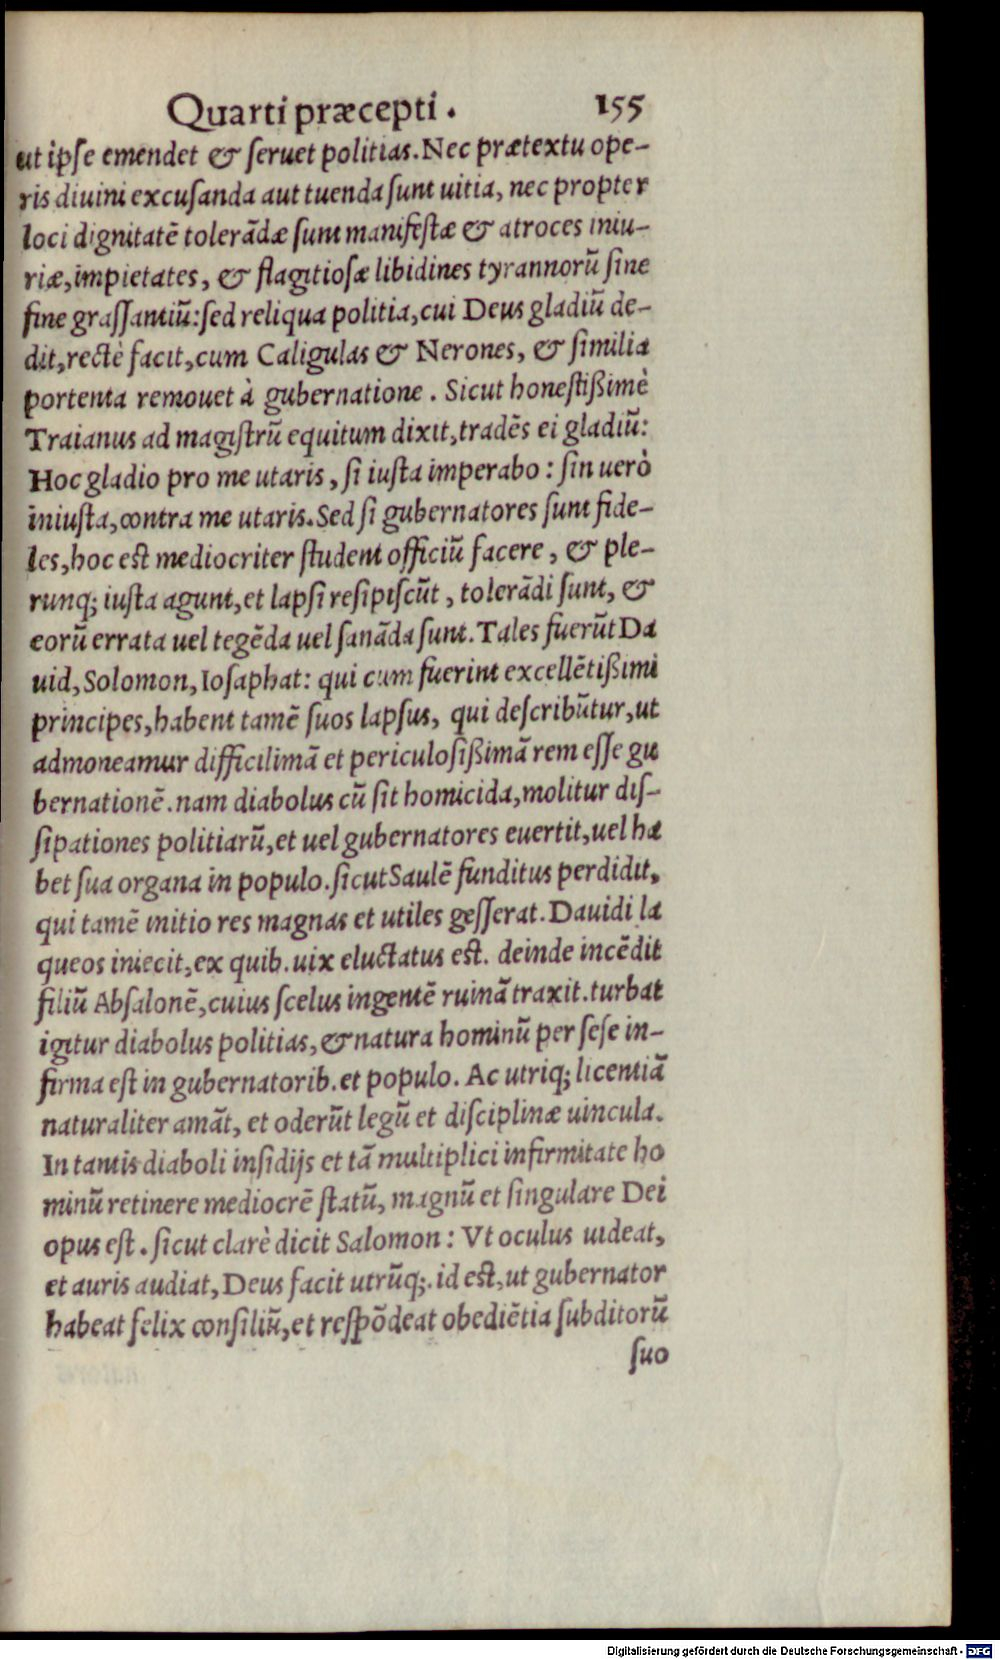 Quarti præcepti. 155
ut ipſe emendet & ſeruet politias. Nec prætextu ope-
ris diuini excuſanda aut tuenda ſunt uitia, nec propter
loci dignitatē tolerādæ ſunt manifeſtæ & atroces iniu-
riæ, impietates, & flagitioſæ libidines tyrannorū ſine
fine graſſantiū: ſed reliqua politia, cui Deus gladiū de-
dit, rectè facit, cum Caligulas & Nerones, & ſimilia
portenta remouet à gubernatione. Sicut honeſtißimè
Traianus ad magiſtrū equitum dixit, tradēs ei gladiū:
Hoc gladio pro me utaris, ſi iuſta imperabo: ſin uerò
iniuſta, contra me utaris. Sed ſi gubernatores ſunt fide-
les, hoc eſt mediocriter ſtudent officiū facere, & ple-
runq; iuſta agunt, et lapſi reſipiſcūt, tolerādi ſunt, &
eorū errata uel tegēda uel ſanāda ſunt. Tales fuerūt Da
uid, Solomon, Ioſaphat: qui cum fuerint excellētißimi
principes, habent tamē ſuos lapſus, qui deſcribūtur, ut
admoneamur difficilimā et periculoſißimā rem eſſe gu
bernationē. nam diabolus cū ſit homicida, molitur diſ-
ſipationes politiarū, et uel gubernatores euertit, uel ha
bet ſua organa in populo. ſicut Saulē funditus perdidit,
qui tamē initio res magnas et utiles geſſerat. Dauidi la
queos iniecit, ex quib. uix eluctatus eſt. deinde incēdit
filiū Abſalonē, cuius ſcelus ingentē ruinā traxit. turbat
igitur diabolus politias, & natura hominū per ſeſe in-
firma eſt in gubernatorib. et populo. Ac utriq; licentiā
naturaliter amāt, et oderūt legū et diſciplinæ uincula.
In tantis diaboli inſidijs et tā multiplici infirmitate ho
minū retinere mediocrē ſtatū, magnū et ſingulare Dei
opus eſt. ſicut clarè dicit Salomon: Vt oculus uideat,
et auris audiat, Deus facit utrūq;. id eſt, ut gubernator
habeat felix conſiliū, et reſpōdeat obediētia ſubditorū
ſuo
Digitalisierung gefördert durch die Deutsche Forschungsgemeinschaft - DFG